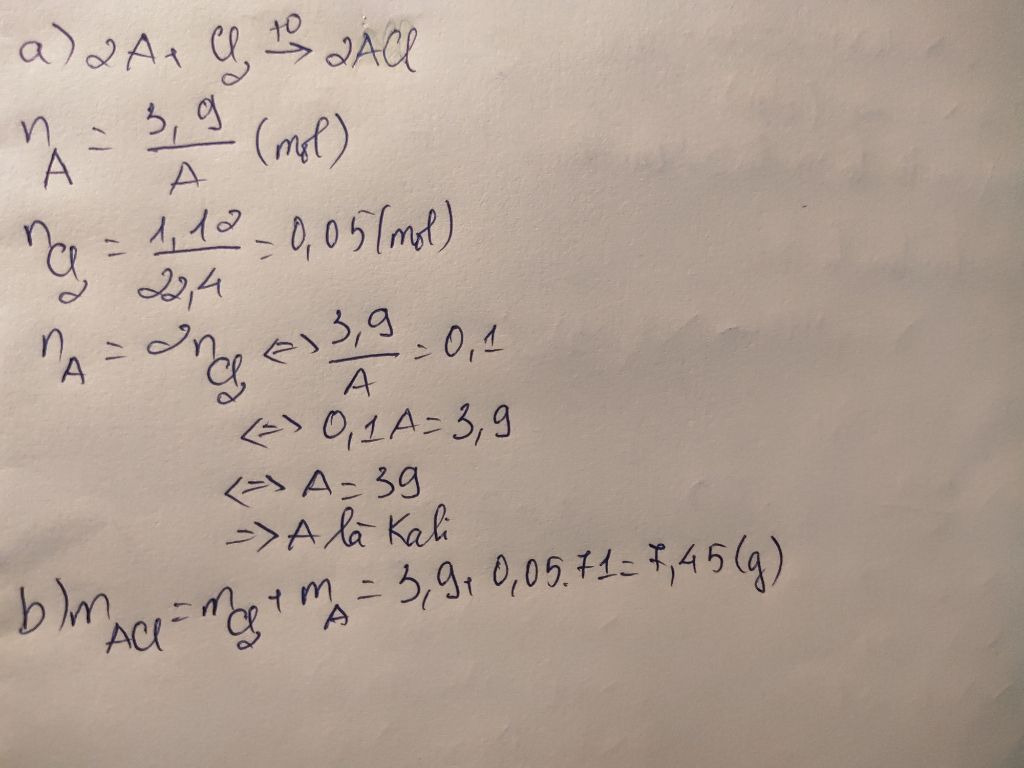 a) 2A + Cl₂ →(t⁰) 2ACl
n_A = 3,9/A (mol)
n_Cl₂ = 1,12/22,4 = 0,05 (mol)
n_A = 2n_Cl₂ <=> 3,9/A = 0,1
<=> 0,1A = 3,9
<=> A = 39
=> A là Kali
b) m_ACl = m_Cl₂ + m_A = 3,9 + 0,05.71 = 7,45 (g)